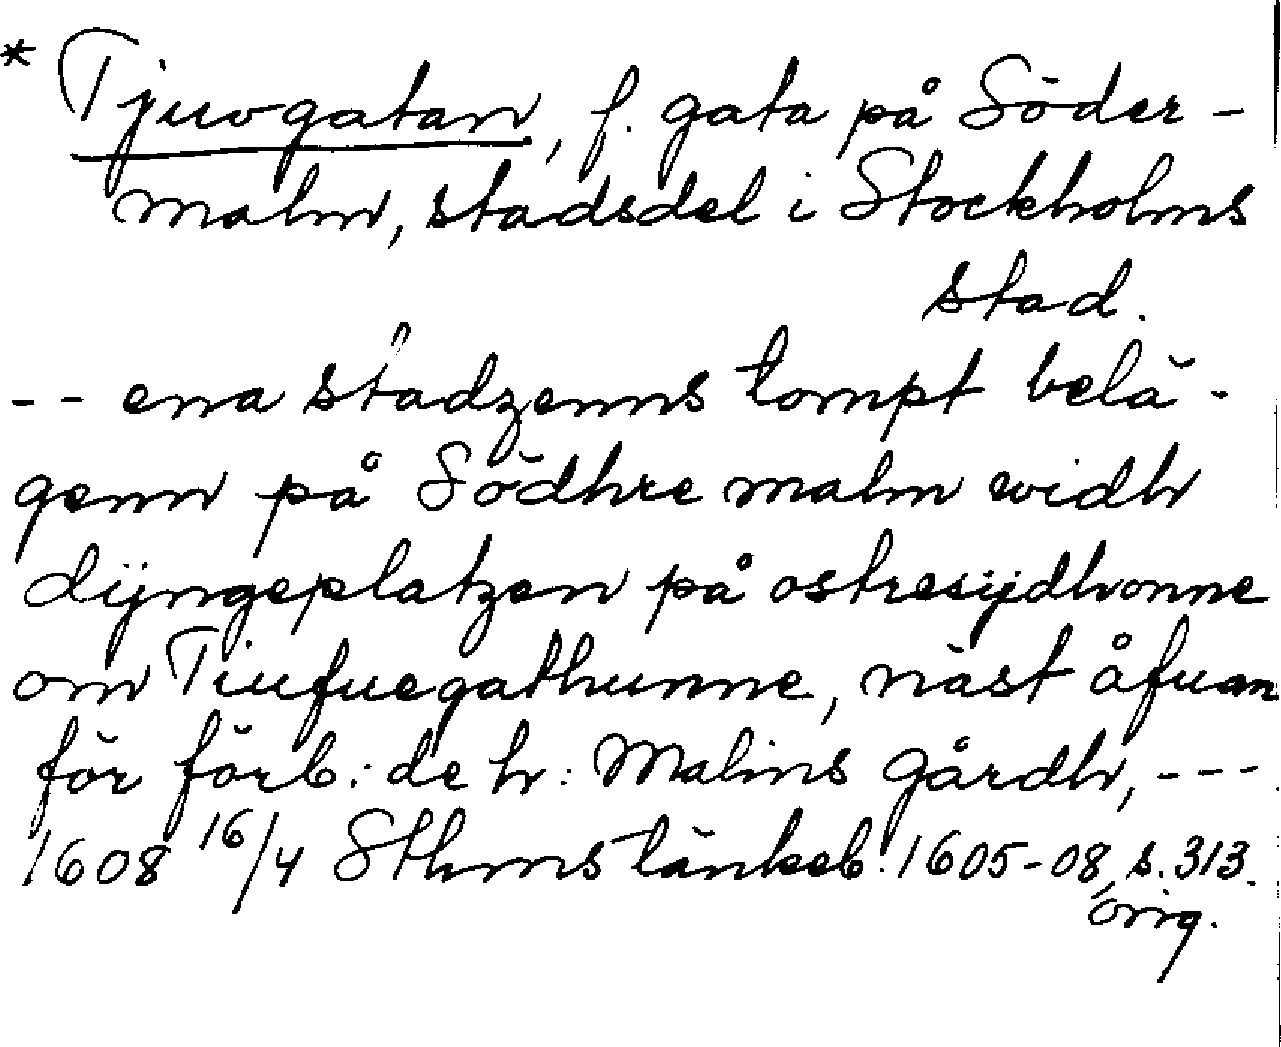 * Tjuvgatan, f. gata på Söder-
malm, stadsdel i Stockholms
stad.
-- ena stadzenns tompt belä-
genn på Södhre malm widh
dijngeplatzen på ostresijdhonne
om Tiufuegathunne, näst åfuan
för förb: de hr: Malins gårdh, ---
1608 16/4 Sthms tänkeb. 1605-08, s. 313.
orig.